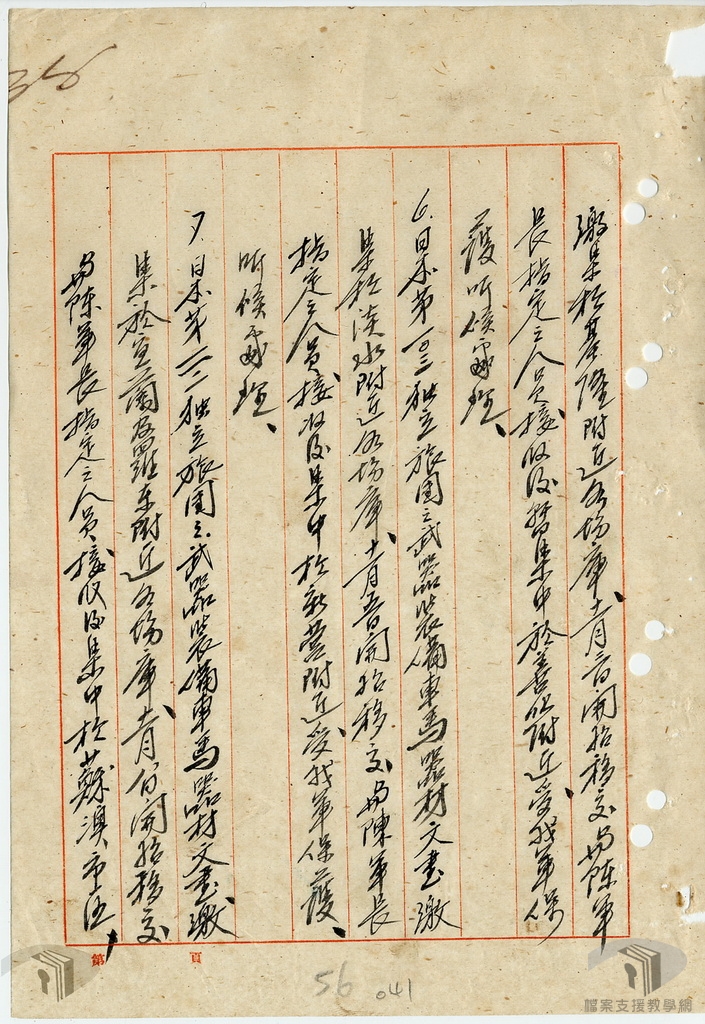 繳集於基隆附近各場庫、十一月一日開始移交與陳軍
長指定之人員接收後暫集中於善化附近、受我軍保
護听候處理、
6.日本第一〇三独立旅團之武器裝備車馬器材文書繳
集於淡水附近各場庫、十一月一日開始移交與陳軍長
指定之人員接收後集中於新營附近、受我軍保護、
听候處理、
7.日本第一一二独立旅團之武器裝備車馬器材文書、繳
集於宜蘭及羅東附近各場庫、十一月 日開始移交
與陳軍長指定之人員接收後集中於蘇澳市區、
第 頁
56 041
檔案支援教學網